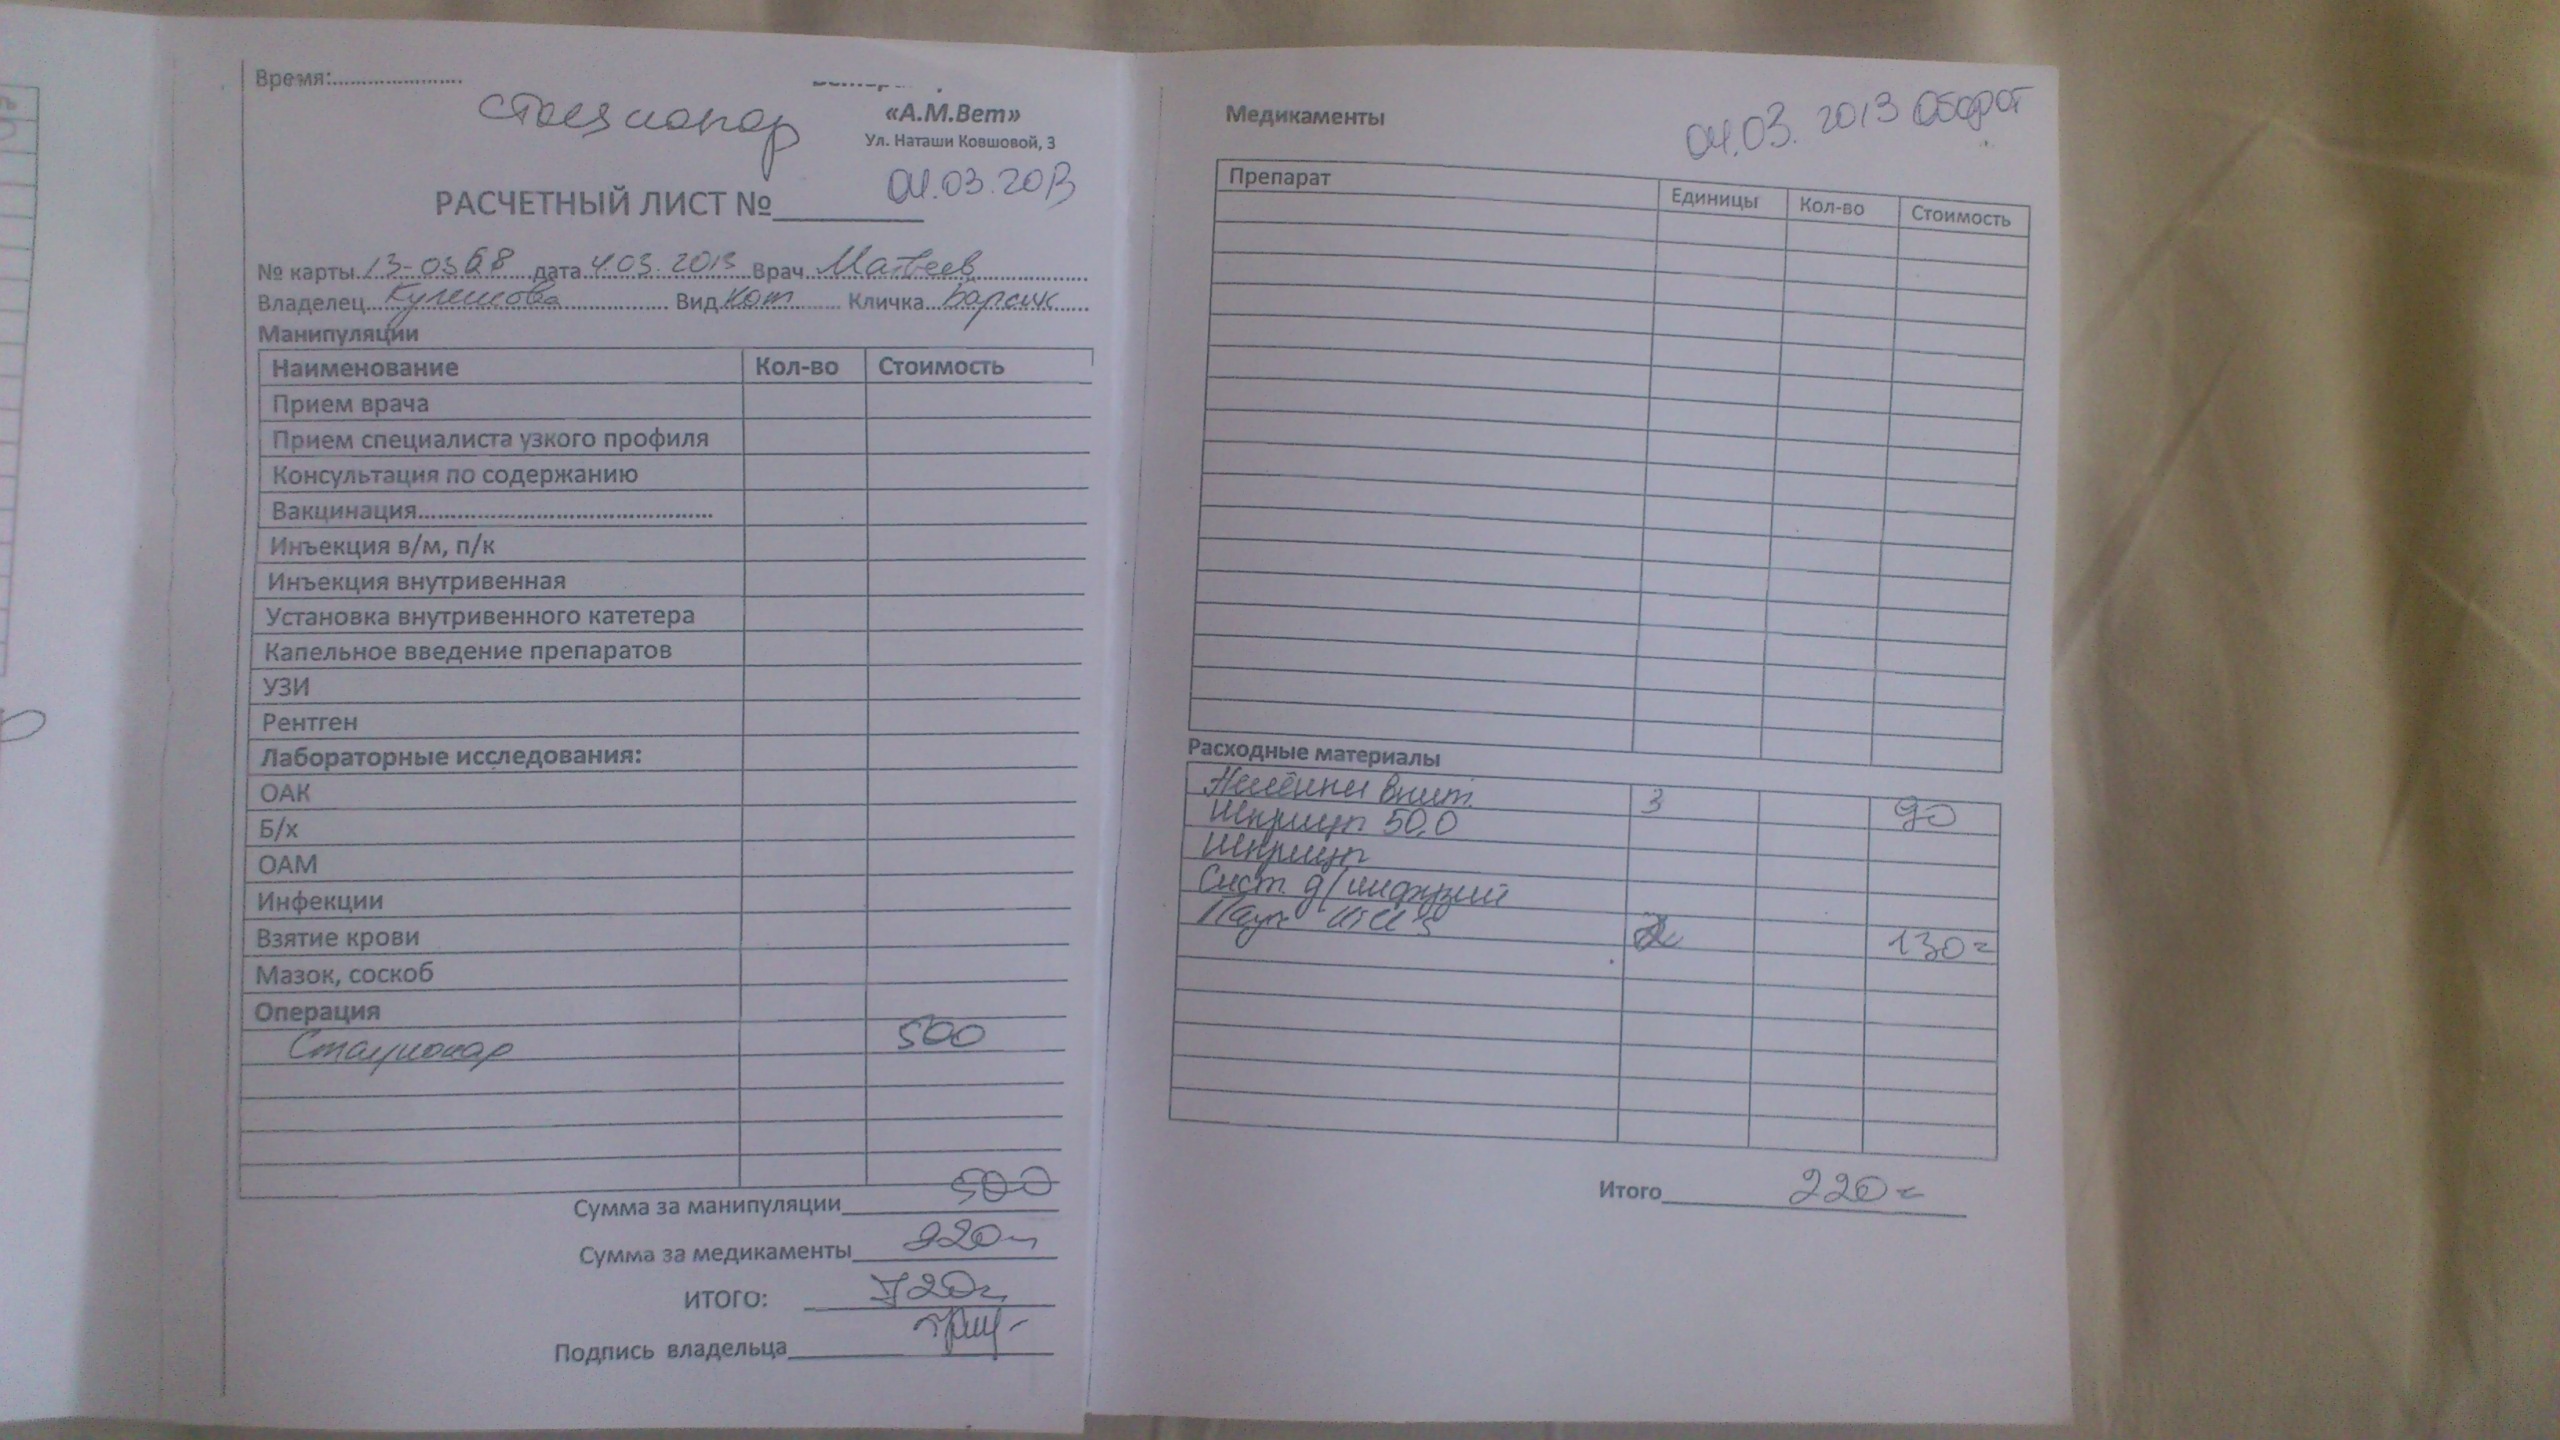 Время:......................
стационар
«А.М.Вет»
Ул. Наташи Ковшовой, 3
04.03.2013
РАСЧЕТНЫЙ ЛИСТ №__________
№ карты 13-0368 дата 4.03.2013 Врач Матвеев
Владелец Кулешова Вид Кот Кличка Барсик
Манипуляции
Наименование Кол-во Стоимость
Прием врача
Прием специалиста узкого профиля
Консультация по содержанию
Вакцинация..........................................
Инъекция в/м, п/к
Инъекция внутривенная
Установка внутривенного катетера
Капельное введение препаратов
УЗИ
Рентген
Лабораторные исследования:
ОАК
Б/х
ОАМ
Инфекции
Взятие крови
Мазок, соскоб
Операция
Стационар 500
Сумма за манипуляции 500
Сумма за медикаменты 220
ИТОГО: 720
Подпись владельца
Медикаменты
04.03.2013 Оборот
Препарат Единицы Кол-во Стоимость
Расходные материалы
Пелёнки впит. 3 90
Шприцы 50,0
Шприцы
Сист. д/инфузий
Пауч 130=
Итого 220=